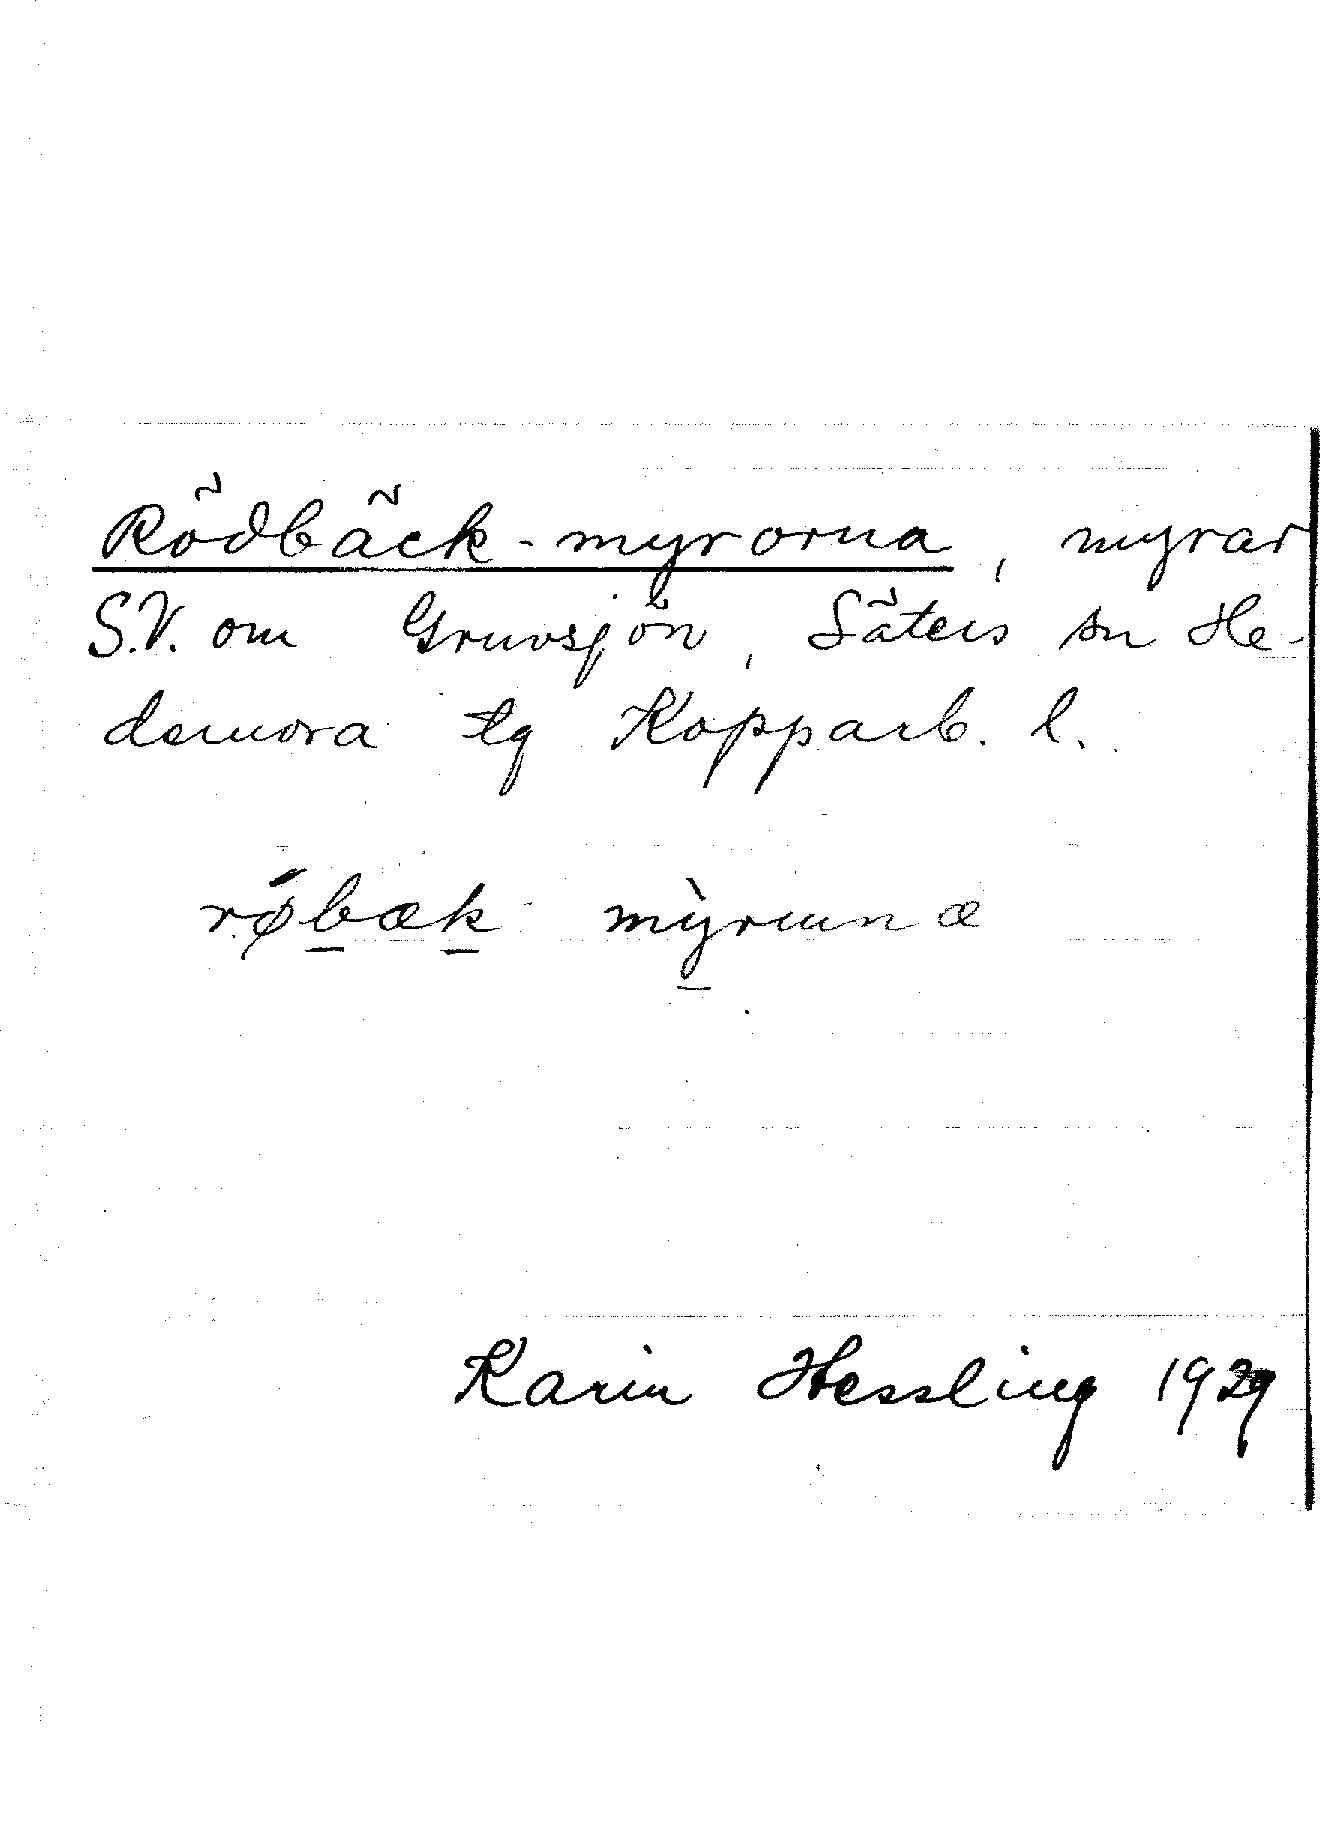 Rödbäck-myrorna, myrar
S.V. om Gruvsjön, Säters sn He-
demora tg Kopparb. l.
røbæk myrunæ
Karin Hessling 1929